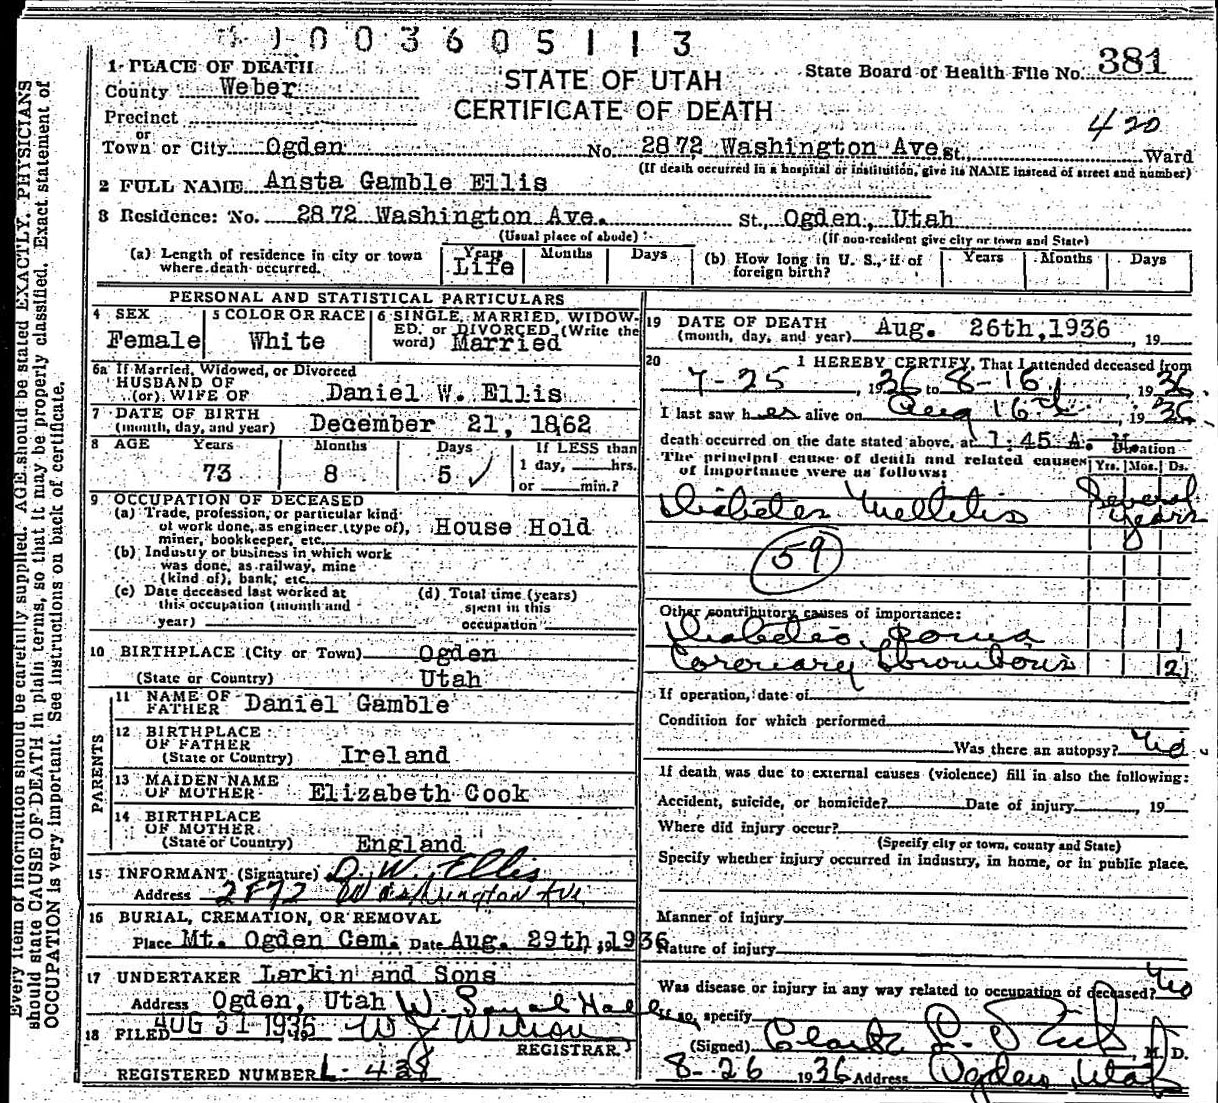 1003605113
1 PLACE OF DEATH
STATE OF UTAH
State Board of Health File No. 381
County Weber
CERTIFICATE OF DEATH
Precinct
420
or
Town or City Ogden No. 2872 Washington Ave. St. Ward
(If death occurred in a hospital or institution, give its NAME instead of street and number)
2 FULL NAME Ansta Gamble Ellis
3 Residence: No. 2872 Washington Ave. St., Ogden, Utah
(Usual place of abode) (If non-resident give city or town and State)
(a) Length of residence in city or town where death occurred. Years Life Months Days (b) How long in U. S., if of foreign birth? Years Months Days
PERSONAL AND STATISTICAL PARTICULARS
4 SEX Female
5 COLOR OR RACE White
6 SINGLE, MARRIED, WIDOWED, or DIVORCED (Write the word) Married
6a If Married, Widowed, or Divorced
HUSBAND OF
(or) WIFE OF Daniel W. Ellis
7 DATE OF BIRTH
(month, day, and year) December 21, 1862
8 AGE Years Months Days If LESS than
73 8 5 1 day, hrs.
or min.?
9 OCCUPATION OF DECEASED
(a) Trade, profession, or particular kind
of work done, as engineer (type of), House Hold
miner, bookkeeper, etc.
(b) Industry or business in which work
was done, as railway, mine
(kind of), bank, etc.
(c) Date deceased last worked at this occupation (month and year)
(d) Total time (years) spent in this occupation
10 BIRTHPLACE (City or Town) Ogden
(State or Country) Utah
PARENTS
11 NAME OF FATHER Daniel Gamble
12 BIRTHPLACE OF FATHER
(State or Country) Ireland
13 MAIDEN NAME OF MOTHER Elizabeth Cook
14 BIRTHPLACE OF MOTHER
(State or Country) England
15 INFORMANT (Signature) D. W. Ellis
Address 2872 Washington Ave
16 BURIAL, CREMATION, OR REMOVAL
Place Mt. Ogden Cem. Date Aug. 29th, 1936
17 UNDERTAKER Larkin and Sons
Address Ogden, Utah W.
18 FILED AUG 31 1936, 19 W J Wilson
REGISTRAR
REGISTERED NUMBER L-428
19 DATE OF DEATH
(month, day, and year) Aug. 26th, 1936, 19
20 I HEREBY CERTIFY, That I attended deceased from
7-25, 1936 to 8-16, 1936
I last saw her alive on Aug 16th, 1936
death occurred on the date stated above, at 1:45 A. M.
The principal cause of death and related causes
of importance were as follows: Yrs. Mos. Ds.
Diabetes Mellitis Several years
59
Other contributory causes of importance:
Diabetic Coma 1
Coronary Thrombosis 2
If operation, date of
Condition for which performed
Was there an autopsy? No
If death was due to external causes (violence) fill in also the following:
Accident, suicide, or homicide? Date of injury, 19
Where did injury occur?
(Specify city or town, county and State)
Specify whether injury occurred in industry, in home, or in public place.
Manner of injury
Nature of injury
Was disease or injury in any way related to occupation of deceased? No
If so, specify
(Signed) Clark L. M. D.
8-26 1936 Address Ogden Utah
Every item of information should be carefully supplied. AGE should be stated EXACTLY. PHYSICIANS
should state CAUSE OF DEATH in plain terms, so that it may be properly classified. Exact statement of
OCCUPATION is very important. See instructions on back of certificate.